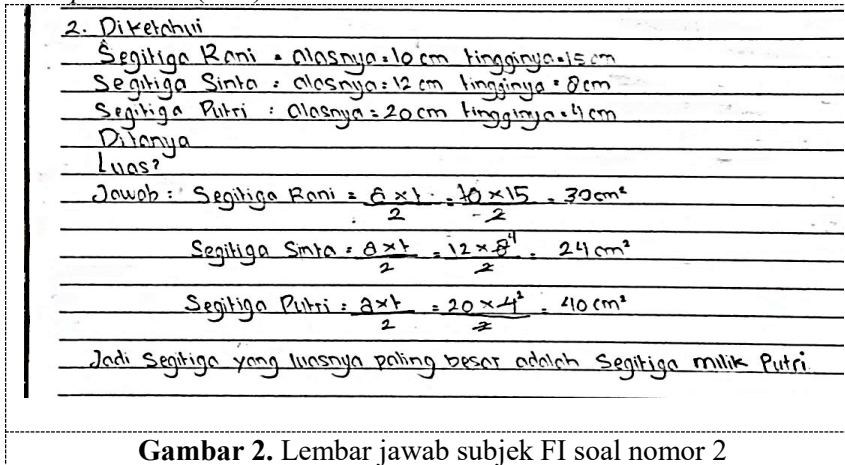 2. Diketahui
Segitiga Rani = alasnya = 10 cm tingginya = 15 cm
Segitiga Sinta : alasnya = 12 cm tingginya = 8 cm
Segitiga Putri : alasnya = 20 cm tingginya = 4 cm
Ditanya
Luas?
Jawab : Segitiga Rani = a x t / 2 = 10 x 15 / 2 = 30 cm²
Segitiga Sinta = a x t / 2 = 12 x 8 4 / 2 = 24 cm²
Segitiga Putri = a x t / 2 = 20 x 4 2 / 2 = 40 cm²
Jadi Segitiga yang luasnya paling besar adalah Segitiga milik Putri
Gambar 2. Lembar jawab subjek FI soal nomor 2